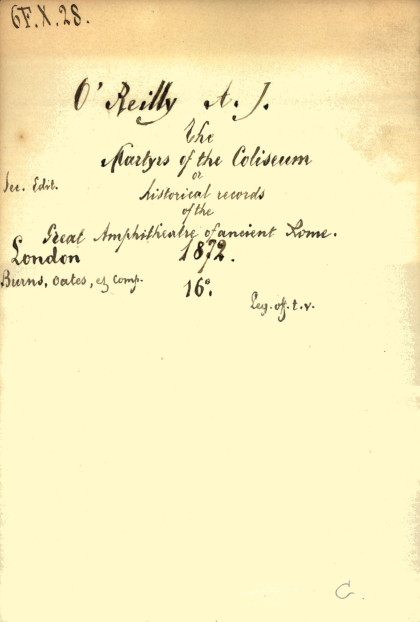 6F.X.28.
O'Reilly A. J.
The
Martyrs of the Coliseum
or
Sec. Edit.
historical records
of the
Great Amphitheatre of ancient Rome.
London 1872.
Burns, Oates, et Comp.
16°.
Leg. off. t. v.
C.